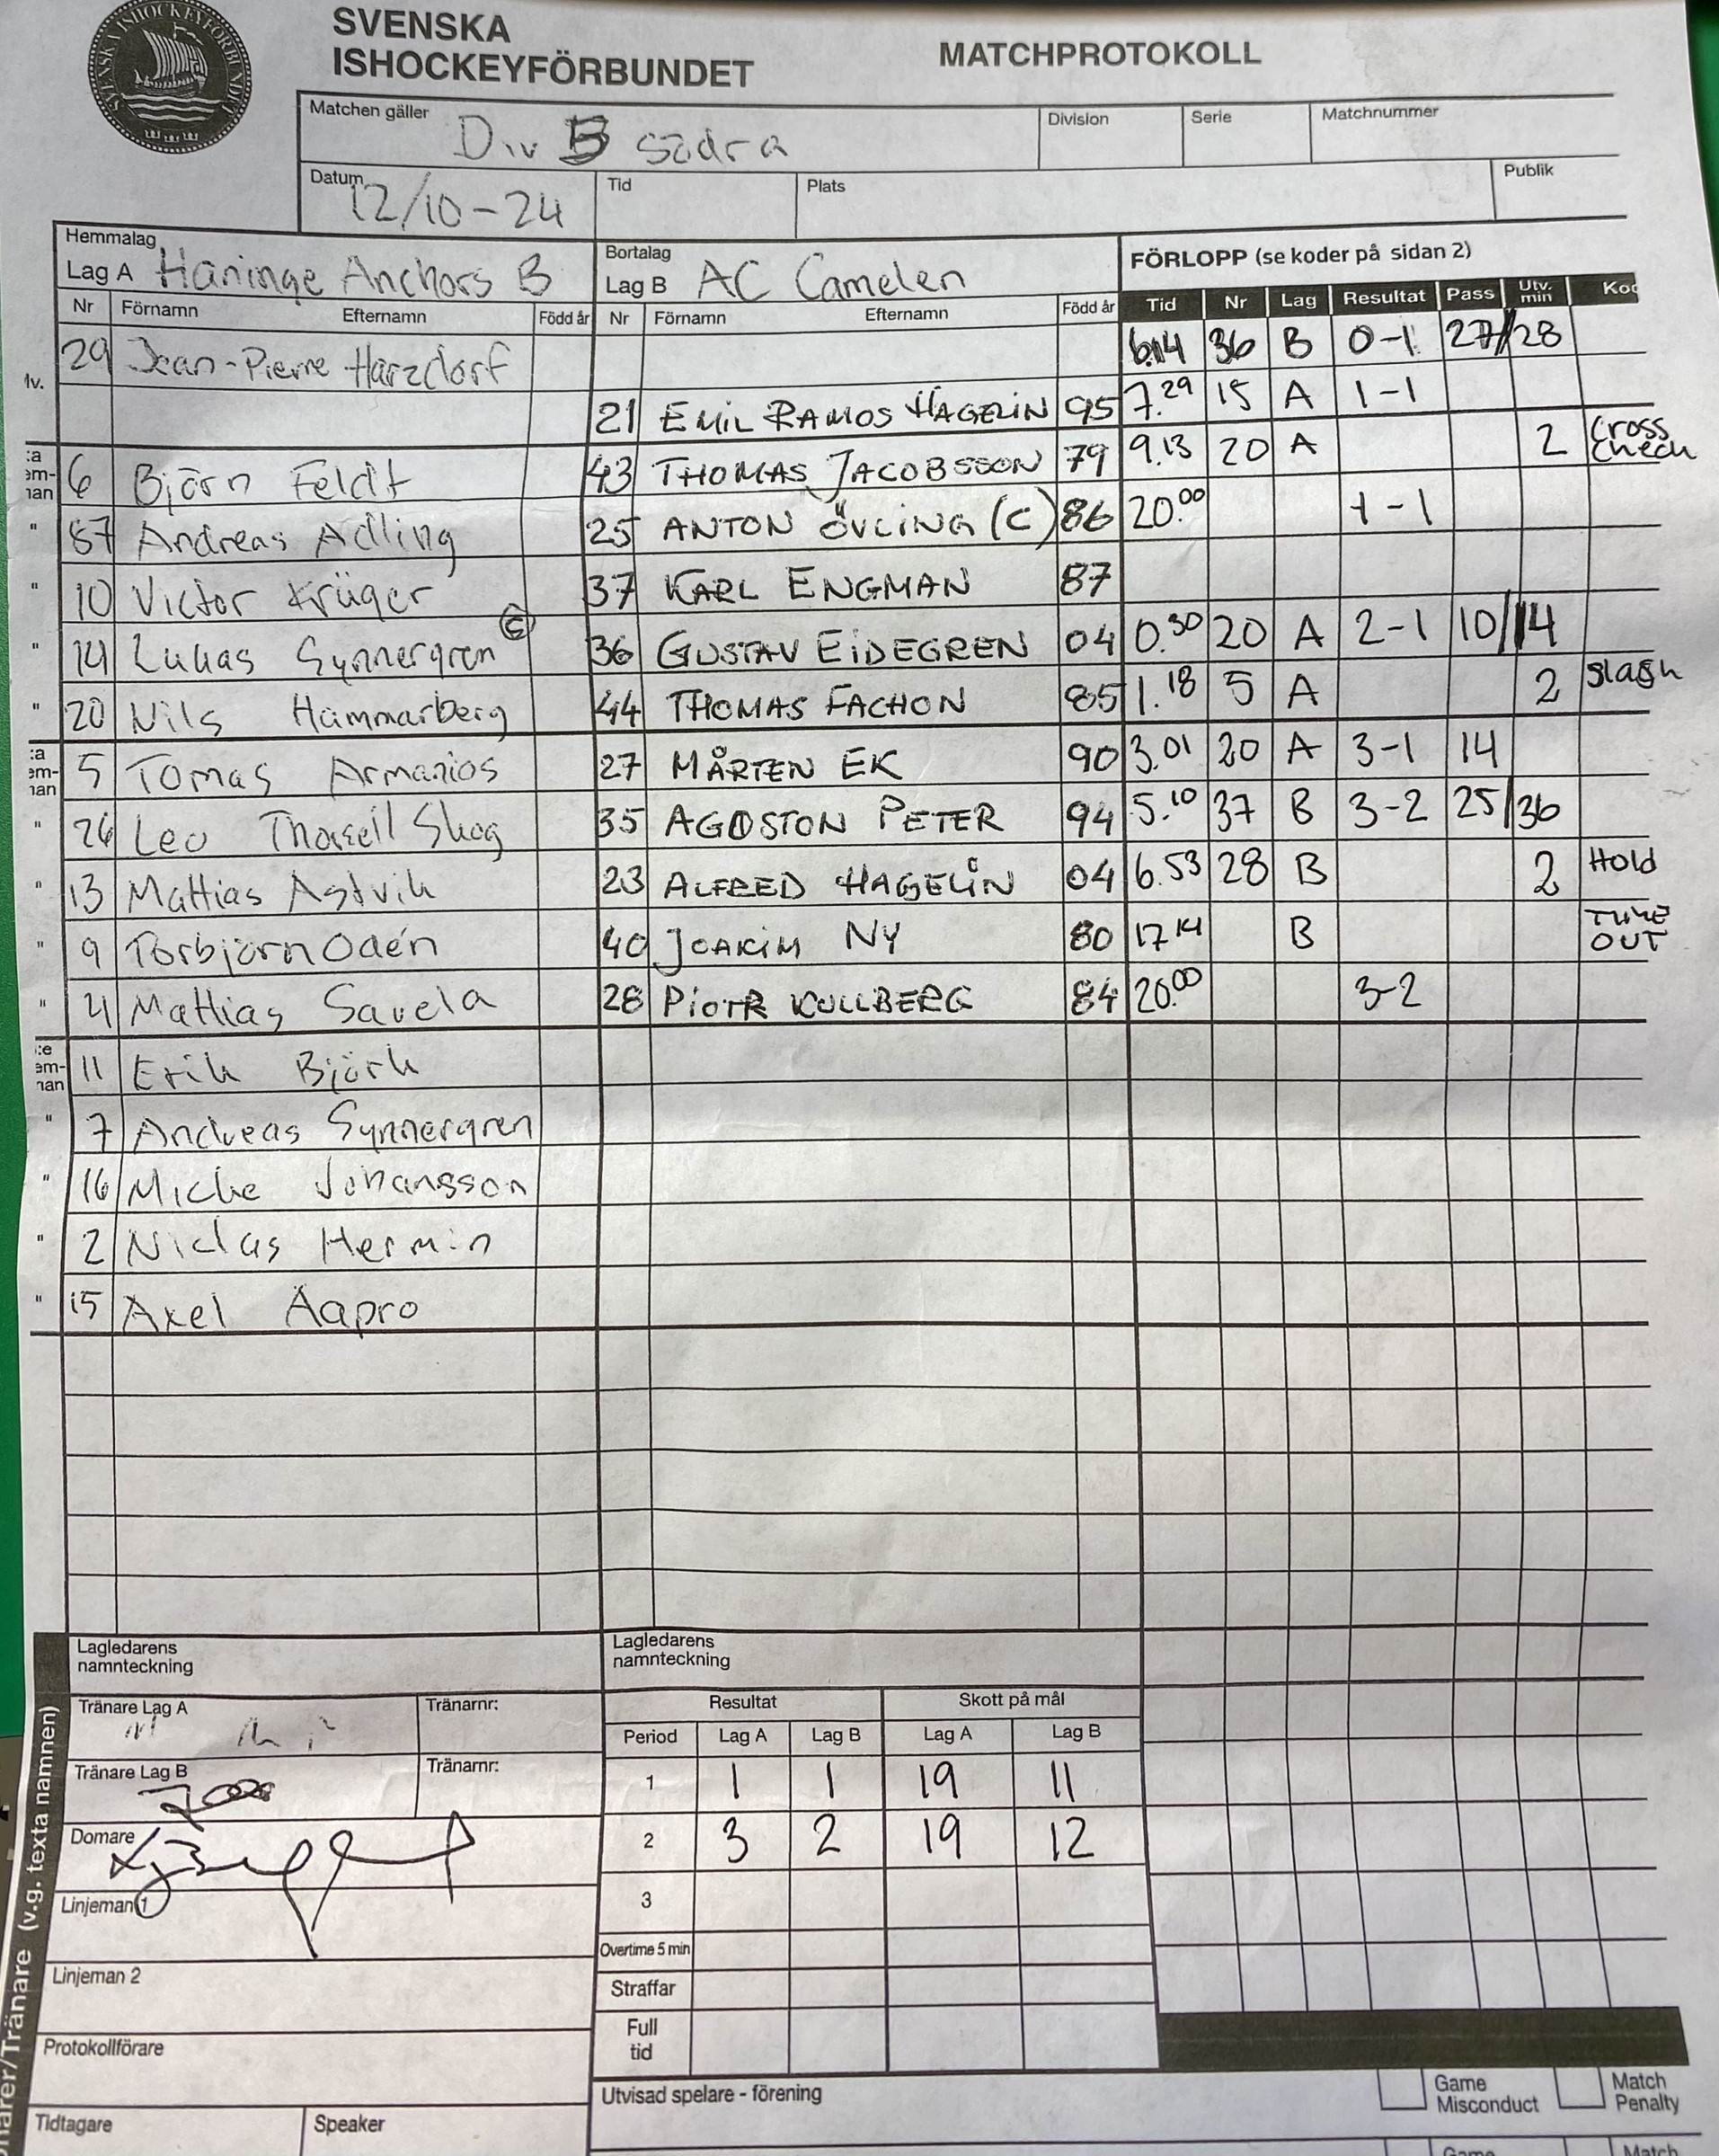 SVENSKA ISHOCKEYFÖRBUNDET
SVENSKA
ISHOCKEYFÖRBUNDET
MATCHPROTOKOLL
Matchen gäller Div 5 södra
Division
Serie
Matchnummer
Datum 12/10-24
Tid
Plats
Publik
Hemmalag
Lag A Haninge Anchors B
Bortalag
Lag B AC Camelen
FÖRLOPP (se koder på sidan 2)
Nr Förnamn Efternamn Född år Nr Förnamn Efternamn Född år Tid Nr Lag Resultat Pass Utv. min Kod
29 Jean-Pierre Harzdorf 6.14 36 B 0-1 27/28
lv.
21 EMIL RAMOS HAGELIN 95 7.29 15 A 1-1
6 Björn Feldt 43 THOMAS JACOBSSON 79 9.13 20 A 2 Cross Check
87 Andreas Adling 25 ANTON ÖVLING (C) 86 20.00 1-1
" 10 Victor Krüger 37 KARL ENGMAN 87
" 14 Lukas Synnergren (C) 36 GUSTAV EIDEGREN 04 0.30 20 A 2-1 10/14
" 20 Nils Hammarberg 44 THOMAS FACHON 85 1.18 5 A 2 Slash
5 Tomas Armanios 27 MÅRTEN EK 90 3.01 20 A 3-1 14
" 26 Leo Thorell Skog 35 AGOSTON PETER 94 5.10 37 B 3-2 25/36
" 13 Mattias Astvik 23 ALFRED HAGELIN 04 6.53 28 B 2 Hold
" 9 Torbjörn Odén 40 JOAKIM NY 80 17.14 B TIME OUT
" 4 Mattias Savela 28 PIOTR KULLBERG 84 20.00 3-2
11 Erik Björk
" 7 Andreas Synnergren
" 16 Micke Johansson
" 2 Niclas Hermin
" 15 Axel Äapro
Lagledarens
namnteckning
Lagledarens
namnteckning
Tränare Lag A
Tränarnr:
Tränare Lag B
Tränarnr:
Domare
Linjeman 1
Linjeman 2
Protokollförare
Tidtagare
Speaker
(v.g. texta namnen)
Resultat Skott på mål
Period Lag A Lag B Lag A Lag B
1 1 1 19 11
2 3 2 19 12
3
Overtime 5 min
Straffar
Full
tid
Utvisad spelare - förening
Game
Misconduct
Match
Penalty
Game
Match